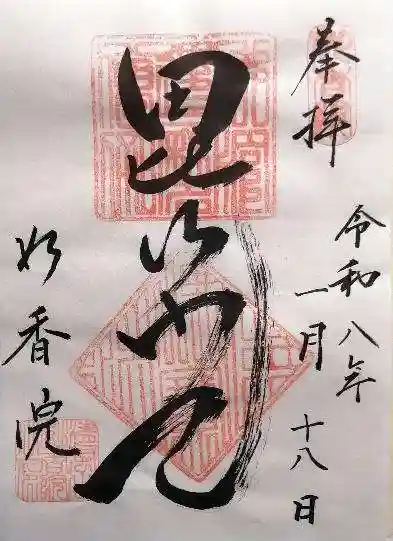 奉拝
令和八年
一月
十八日
毘沙門天
妙香院